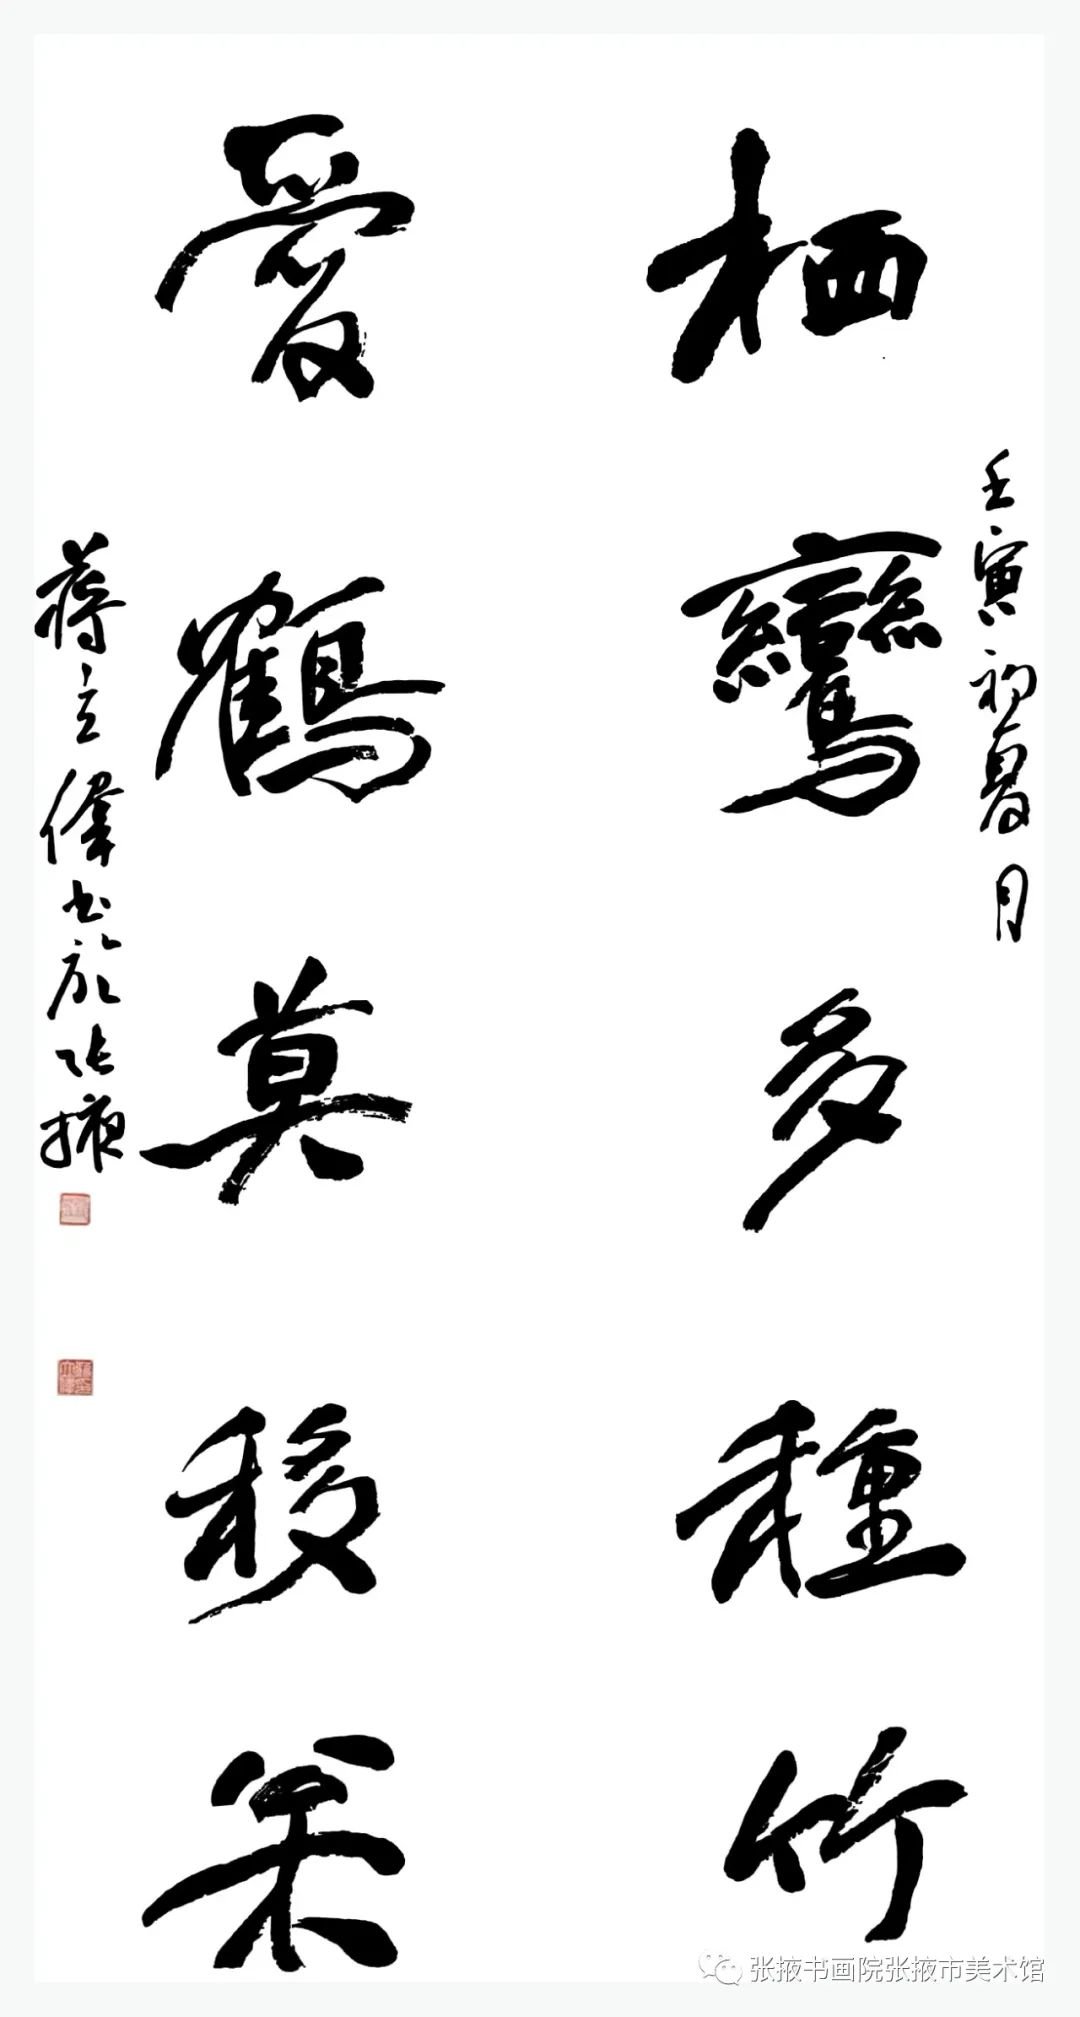 壬寅初夏月
栖鸞多種竹
愛鶴莫移枀
蔣立偉书於张掖
张掖书画院张掖市美术馆